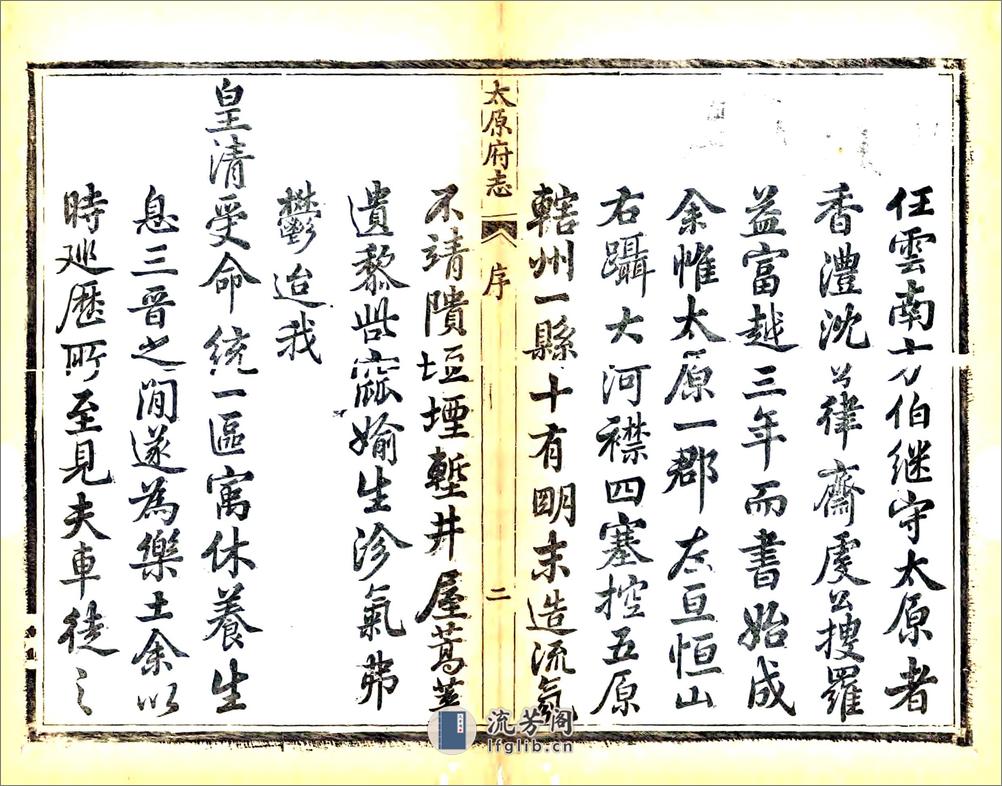 任雲南方伯継守太原者
香澧沈公葎齋虔公搜羅
益富越三年而書始成
余惟太原一郡左亘恒山
右躡大河襟四塞控五原
轄州一縣十有明末造流氛
太原府志
序
二
不靖隤垣堙塹井屋蒿萊
遺黎呰窳婾生沴氣弗
鬱迨我
皇清受命統一區寓休養生
息三晋之間遂為樂土余以
時廵歷所至見夫車徒之
流芳阁
lfglib.cn